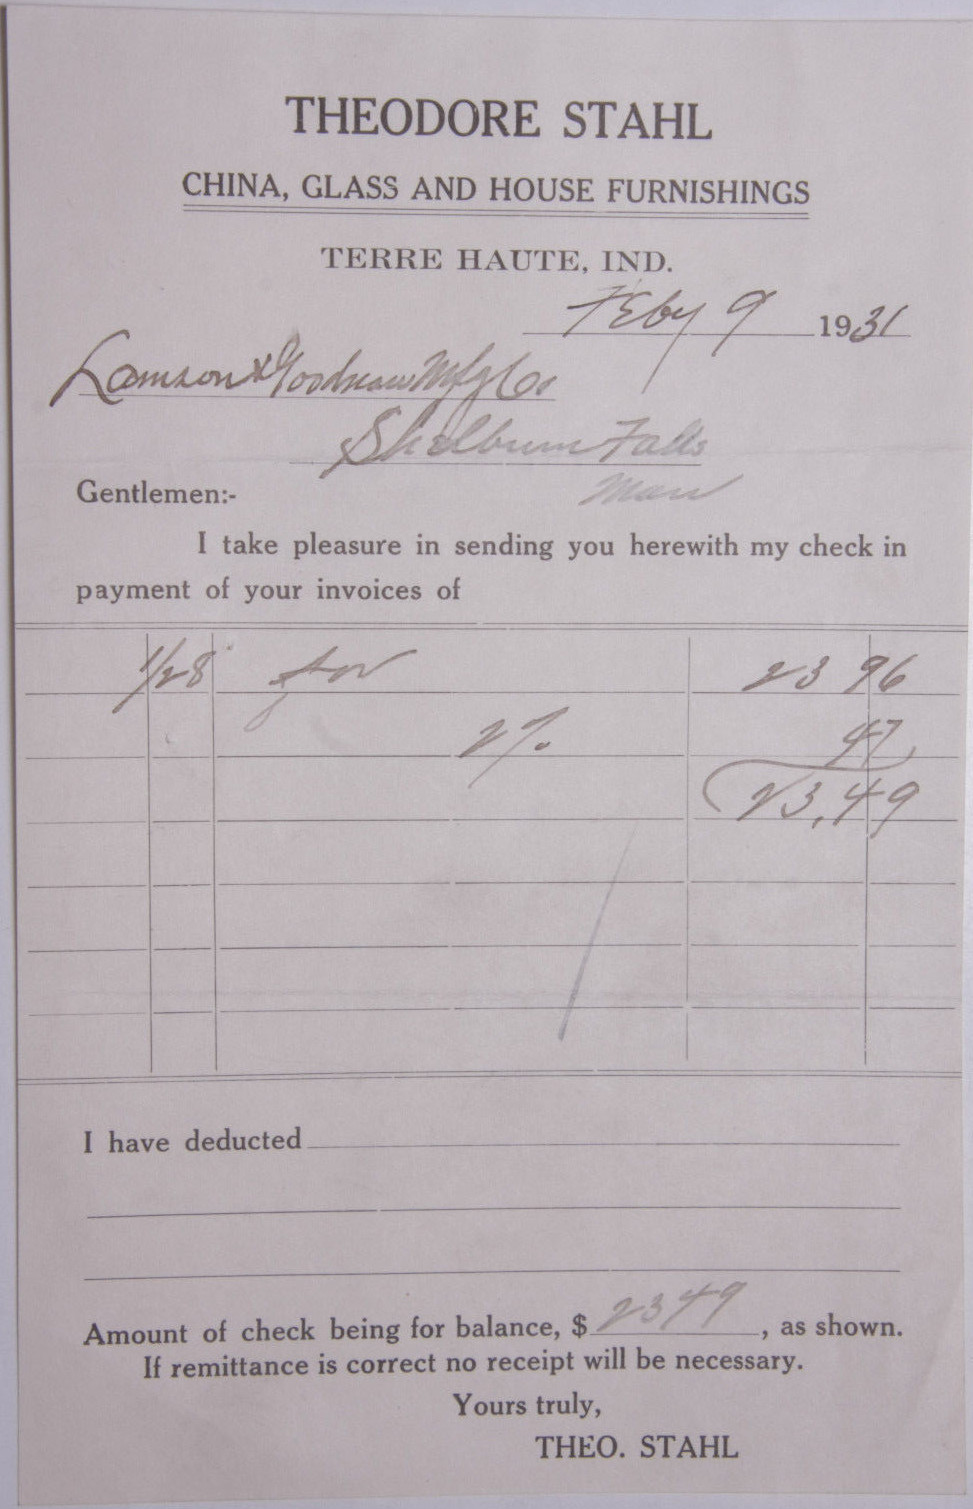 THEODORE STAHL
CHINA, GLASS AND HOUSE FURNISHINGS
TERRE HAUTE, IND.
Feby 9 1931
Lamson & Goodnow Mfg Co
Shelburn Falls
Mass
Gentlemen:-
I take pleasure in sending you herewith my check in
payment of your invoices of
1/28 for 23 96
2% 47
23,49
I have deducted
Amount of check being for balance, $ 2349, as shown.
If remittance is correct no receipt will be necessary.
Yours truly,
THEO. STAHL